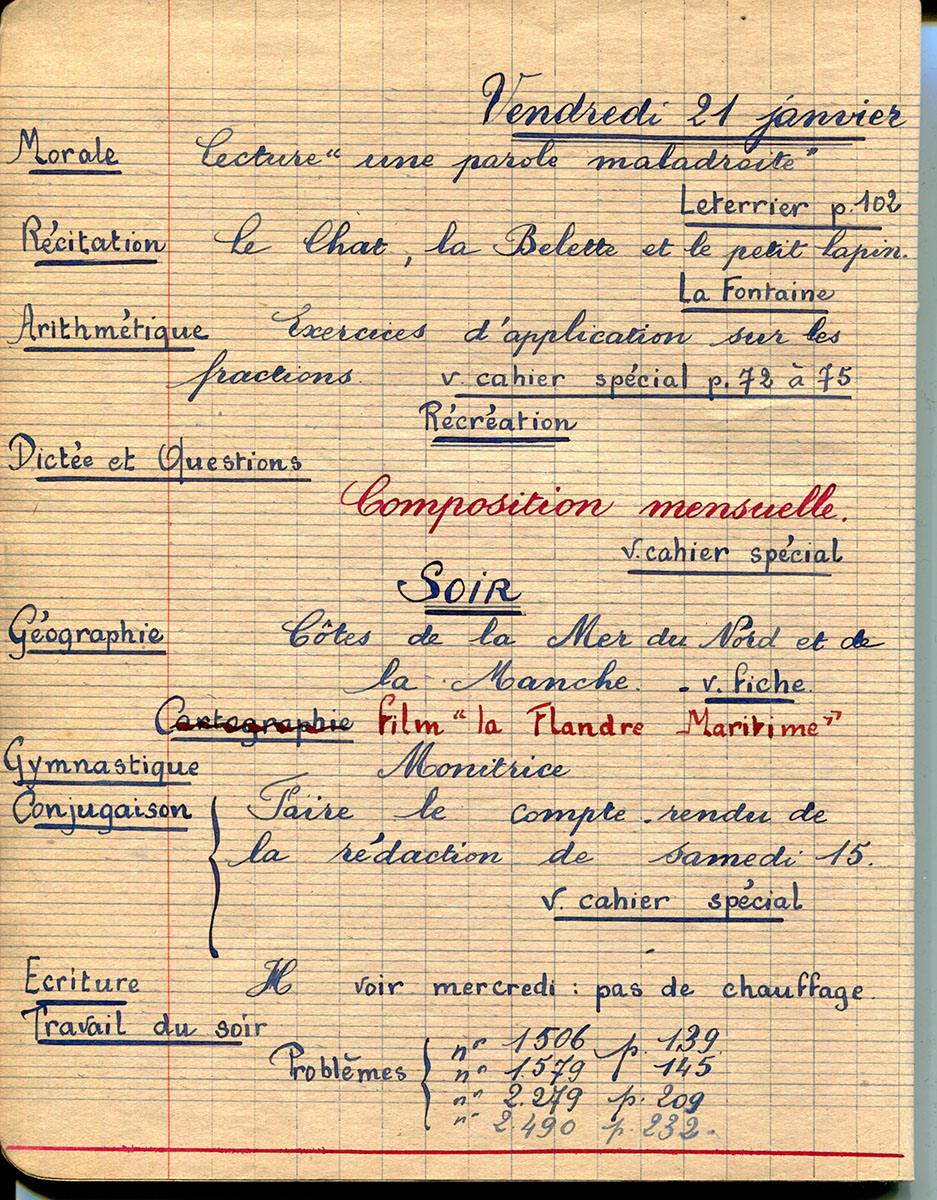 Vendredi 21 janvier
Morale Lecture "une parole maladroite"
Leterrier p. 102
Récitation Le Chat, la Belette et le petit lapin.
La Fontaine
Arithmétique Exercices d'application sur les
fractions. v. cahier spécial p. 72 à 75
Récréation
Dictée et Questions
Composition mensuelle.
v. cahier spécial
SOIR
Géographie Côtes de la Mer du Nord et de
la Manche. - v. fiche.
Cartographie film "la Flandre Maritime"
Gymnastique Monitrice
Conjugaison Faire le compte-rendu de
la rédaction de samedi 15.
v. cahier spécial
Ecriture H voir mercredi : pas de chauffage.
Travail du soir
Problèmes n° 1506 p. 139
n° 1.579 p. 145
n° 2.279 p. 209
n° 2.490 p. 232.